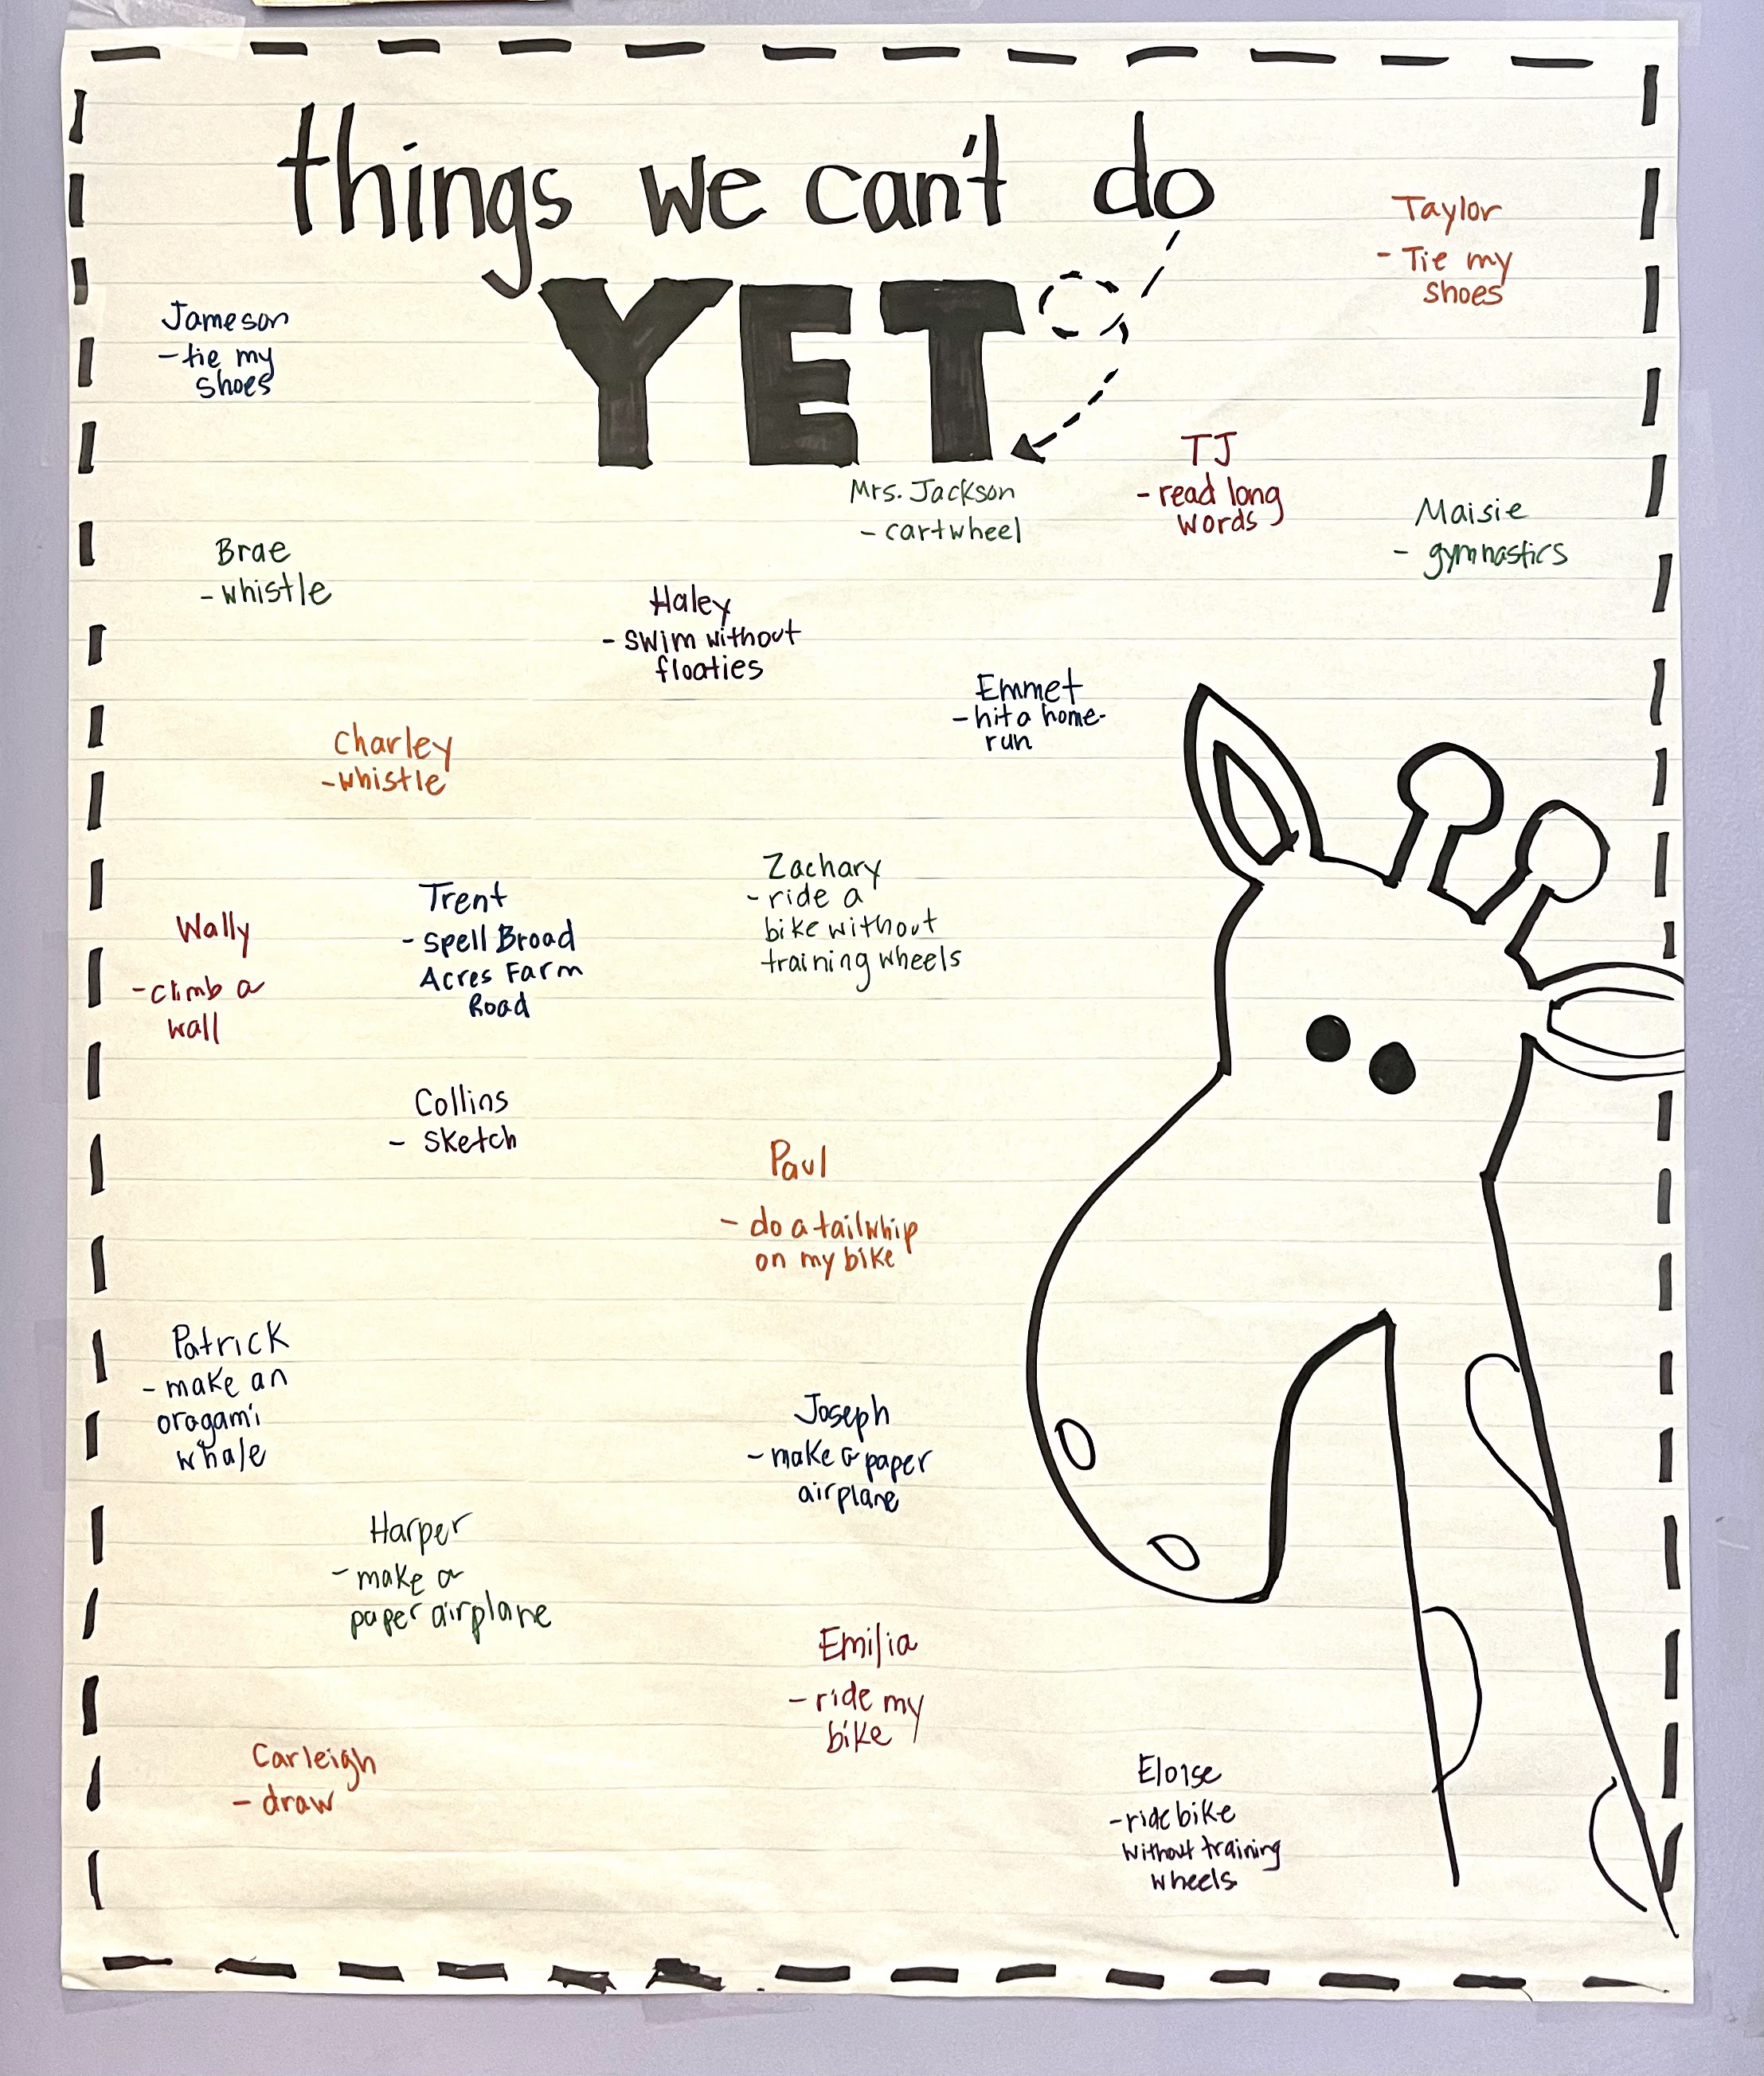 things we can't do
YET
Taylor
- Tie my
shoes
Jameson
- tie my
shoes
Mrs. Jackson
- cartwheel
TJ
- read long
words
Maisie
- gymnastics
Brae
- whistle
Haley
- swim without
floaties
Emmet
- hit a home-
run
Charley
- whistle
Zachary
- ride a
bike without
training wheels
Trent
- spell Broad
Acres Farm
Road
Wally
- climb a
wall
Collins
- sketch
Paul
- do a tailwhip
on my bike
Patrick
- make an
oragami
whale
Joseph
- make a paper
airplane
Harper
- make a
paper airplane
Emilia
- ride my
bike
Carleigh
- draw
Eloise
- ride bike
without training
wheels